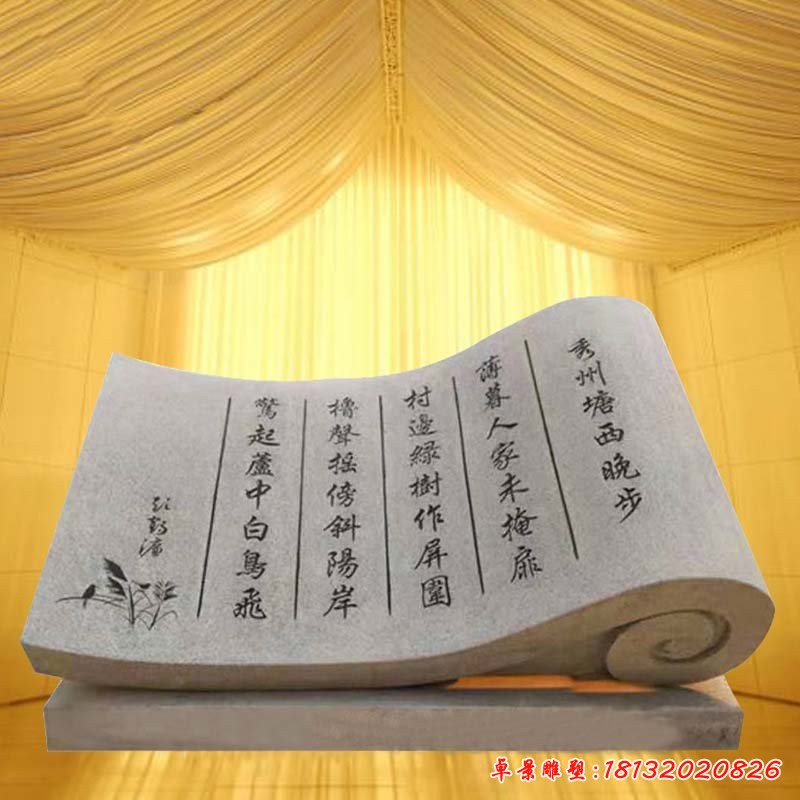 秀州塘西晚步
薄暮人家未掩扉
村邊綠樹作屏圍
櫓聲摇傍斜陽岸
驚起蘆中白鳥飛
卓景雕塑:18132020826